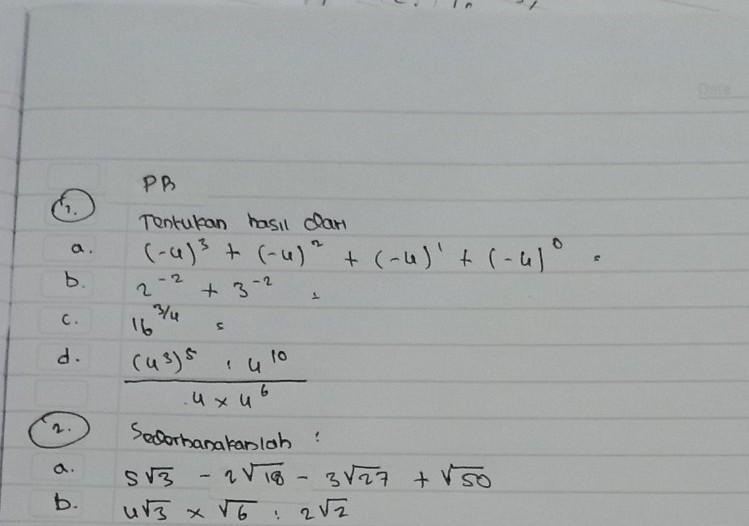 PB
1.
Tentukan hasil dari
a. (-4)³ + (-4)² + (-4)¹ + (-4)⁰ =
b. 2⁻² + 3⁻² =
c. 16^3/4 =
d. (4³)⁵ : 4¹⁰
4 x 4⁶
2. Sederhanakanlah :
a. 5√3 - 2√18 - 3√27 + √50
b. 4√3 x √6 : 2√2